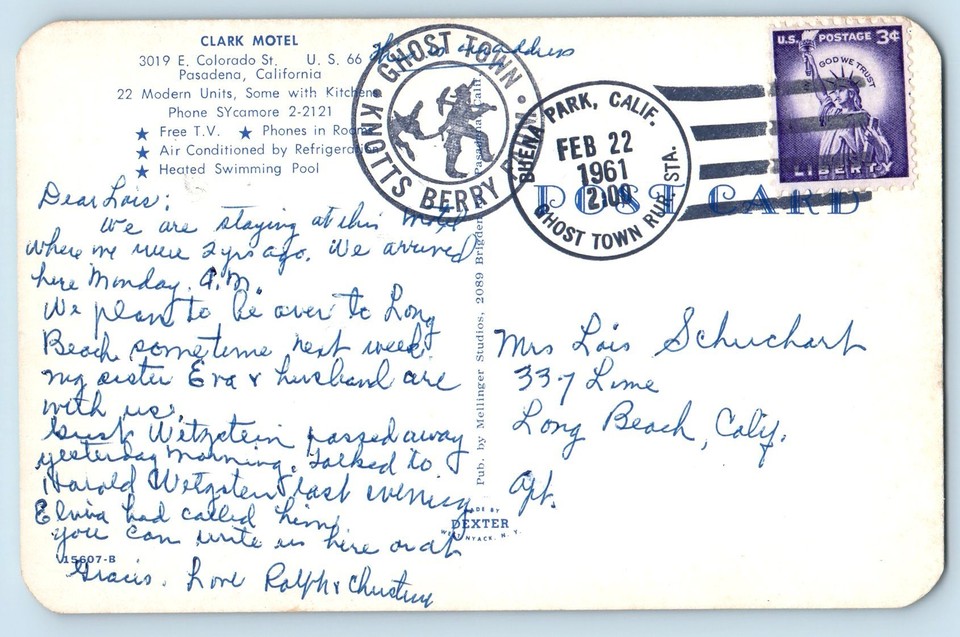 CLARK MOTEL
3019 E. Colorado St. U. S. 66
Pasadena, California
22 Modern Units, Some with Kitchens
Phone SYcamore 2-2121
★ Free T.V. ★ Phones in Room
★ Air Conditioned by Refrigeration
★ Heated Swimming Pool
This is address
GHOST TOWN
KNOTTS BERRY
BUENA PARK, CALIF.
FEB 22
1961
2:00
GHOST TOWN RUR. STA.
U.S. POSTAGE 3¢
GOD WE TRUST
LIBERTY
POST CARD
Dear Lois:
We are staying at this Motel
where we were 2 yrs ago. We arrived
here Monday A.M.
We plan to be over to Long
Beach sometime next week.
my sister Eva & husband are
with us.
Wetzstein passed away
yesterday morning. Talked to
Harold Wetzstein last evening
Elvira had called him.
you can write us here or at
Gracis. Love Ralph & Christine
Mrs Lois Schuchart
337 Lime
Long Beach, Calif.
Apt.
Pub. by Mellinger Studios, 2089 Brigden Pasadena Calif.
MADE BY
DEXTER
WEST NYACK, N. Y.
15607-B